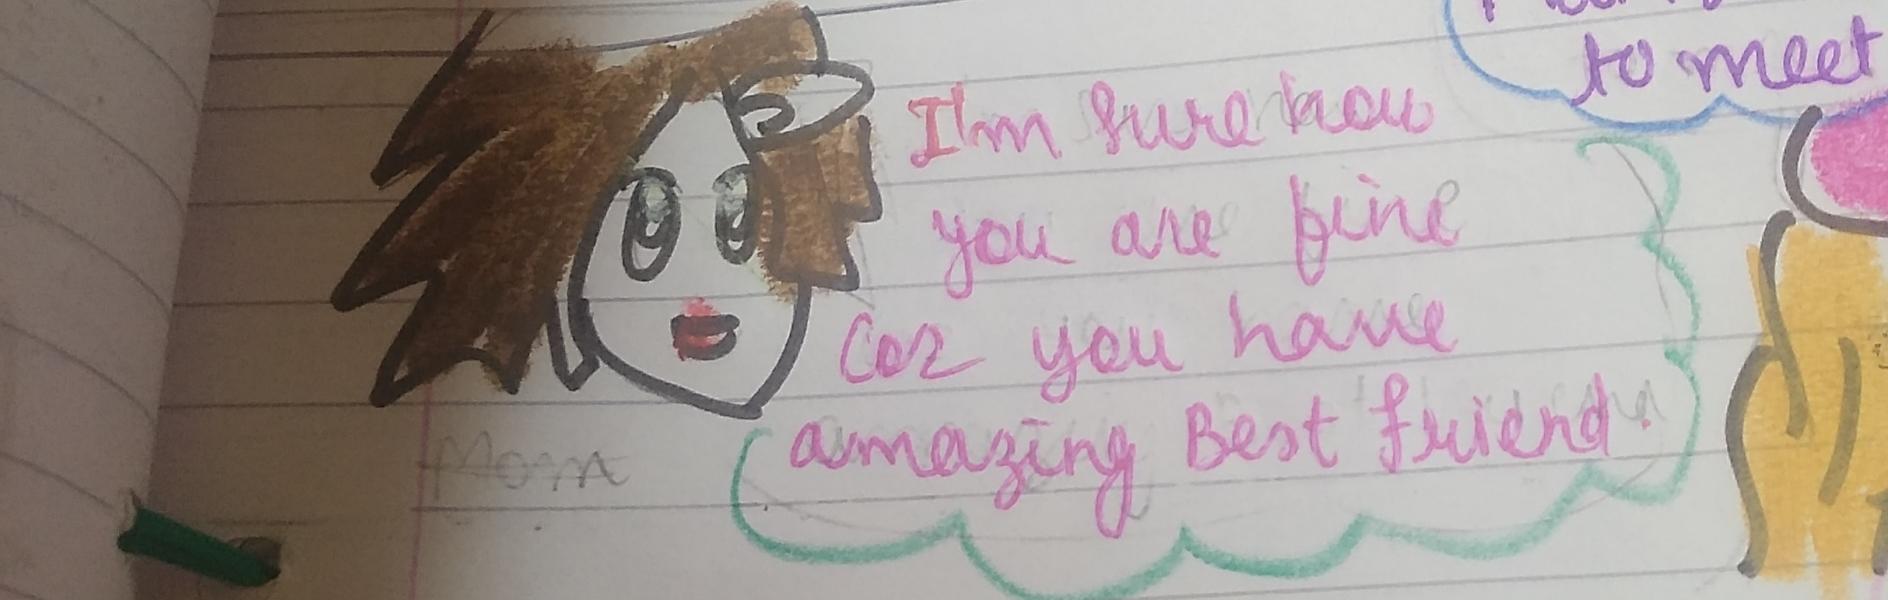 to meet
I'm sure now
you are fine
Coz you have
amazing Best friend.
Mom